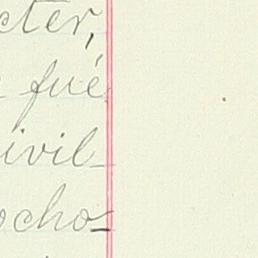 cter,
fué
ivil-
ocho-